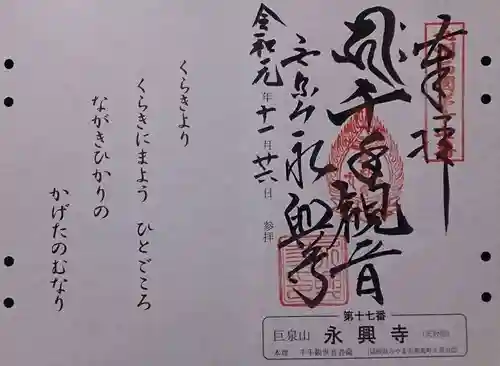 奉拝
千手観音
永興寺
令和元年十一月廿六日 参拝
くらきより
くらきにまよう ひとごころ
ながきひかりの
かげたのむなり
第十七番
巨泉山 永興寺
本尊 千手観世音菩薩